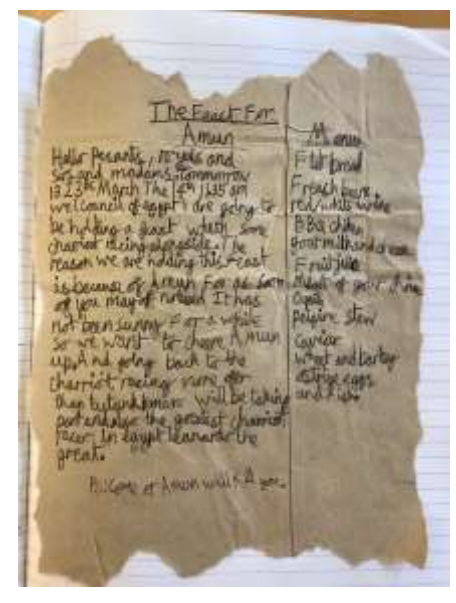 The Feact For
Amun
Hello Pesants, royals and
Sirs and madams, tommorow
1323BC March The 4th 11:35 am
we (council of egypt) are going to
be holding a feast with some
charriot racing alongside. The
reason we are holding this feast
is because of Amun For as Som
of you may of noticed It has
not been sunny For a while
so we want to cheere Amun
up. And going back to the
charriot racing none other
than tutankhamun will be taking
part and also the greatest charriot
racer in egypt the
great.
P.S. Come or Amun will kill you.
Menu
Flat bread
French beans,
red/white wine
BBQ chiken
goat milk and cheese
Fruit juice
Meat of your
stew
Caviar
wheat and barley
ostrige eggs
and Fish.